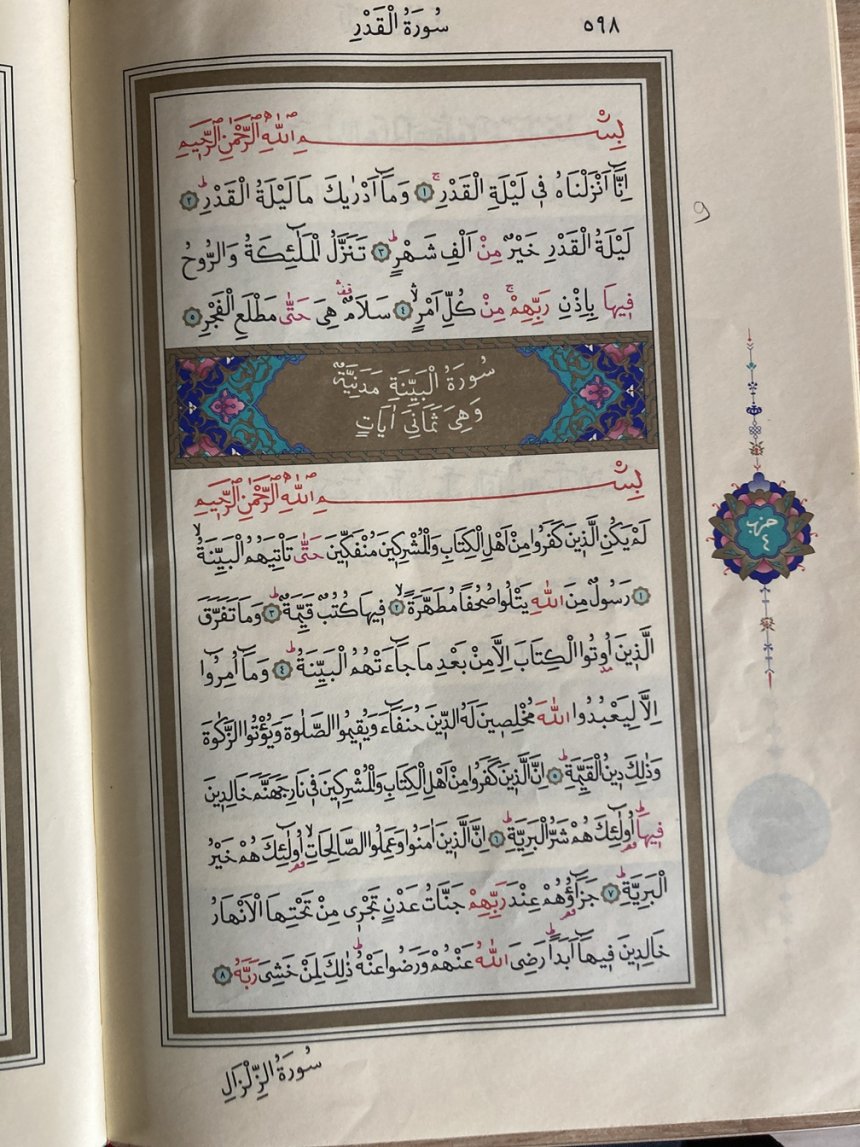 سُورَةُ الْقَدْرِ
٥٩٨
بِسْمِ اللّٰهِ الرَّحْمٰنِ الرَّحِيمِ
اِنَّٓا اَنْزَلْنَاهُ فٖى لَيْلَةِ الْقَدْرِ ﴿١﴾ وَمَٓا اَدْرٰيكَ مَا لَيْلَةُ الْقَدْرِ ﴿٢﴾
لَيْلَةُ الْقَدْرِ خَيْرٌ مِنْ اَلْفِ شَهْرٍ ﴿٣﴾ تَنَزَّلُ الْمَلٰٓئِكَةُ وَالرُّوحُ
فٖيهَا بِاِذْنِ رَبِّهِمْ مِنْ كُلِّ اَمْرٍ ﴿٤﴾ سَلَامٌ هِىَ حَتّٰى مَطْلَعِ الْفَجْرِ ﴿٥﴾
سُورَةُ الْبَيِّنَةِ مَدَنِيَّةٌ
وَهِىَ ثَمَانِىَ اٰيَاتٍ
بِسْمِ اللّٰهِ الرَّحْمٰنِ الرَّحِيمِ
لَمْ يَكُنِ الَّذٖينَ كَفَرُوا مِنْ اَهْلِ الْكِتَابِ وَالْمُشْرِكٖينَ مُنْفَكّٖينَ حَتّٰى تَاْتِيَهُمُ الْبَيِّنَةُ
﴿١﴾ رَسُولٌ مِنَ اللّٰهِ يَتْلُوا صُحُفًا مُطَهَّرَةً ﴿٢﴾ فٖيهَا كُتُبٌ قَيِّمَةٌ ﴿٣﴾ وَمَا تَفَرَّقَ
الَّذٖينَ اُوتُوا الْكِتَابَ اِلَّا مِنْ بَعْدِ مَا جَٓاءَتْهُمُ الْبَيِّنَةُ ﴿٤﴾ وَمَٓا اُمِرُٓوا
اِلَّا لِيَعْبُدُوا اللّٰهَ مُخْلِصٖينَ لَهُ الدّٖينَ حُنَفَٓاءَ وَيُقٖيمُوا الصَّلٰوةَ وَيُؤْتُوا الزَّكٰوةَ
وَذٰلِكَ دٖينُ الْقَيِّمَةِ ﴿٥﴾ اِنَّ الَّذٖينَ كَفَرُوا مِنْ اَهْلِ الْكِتَابِ وَالْمُشْرِكٖينَ فٖى نَارِ جَهَنَّمَ خَالِدٖينَ
فٖيهَا اُولٰٓئِكَ هُمْ شَرُّ الْبَرِيَّةِ ﴿٦﴾ اِنَّ الَّذٖينَ اٰمَنُوا وَعَمِلُوا الصَّالِحَاتِ اُولٰٓئِكَ هُمْ خَيْرُ
الْبَرِيَّةِ ﴿٧﴾ جَزَٓاؤُهُمْ عِنْدَ رَبِّهِمْ جَنَّاتُ عَدْنٍ تَجْرٖى مِنْ تَحْتِهَا الْاَنْهَارُ
خَالِدٖينَ فٖيهَٓا اَبَدًا رَضِىَ اللّٰهُ عَنْهُمْ وَرَضُوا عَنْهُ ذٰلِكَ لِمَنْ خَشِىَ رَبَّهُ ﴿٨﴾
حزب
٤
سُورَةُ الزِّلْزَالِ